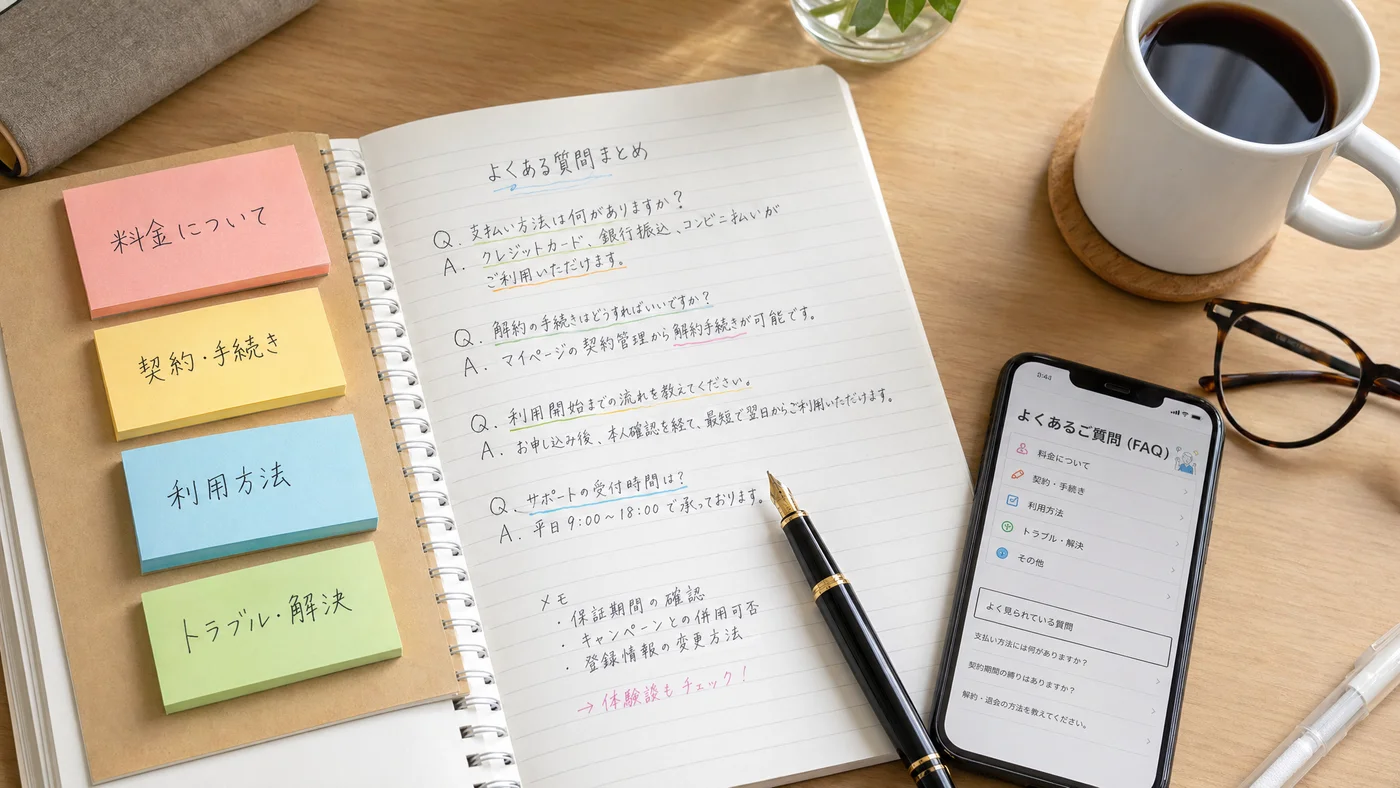 料金について
契約・手続き
利用方法
トラブル・解決
よくある質問まとめ
Q. 支払い方法は何がありますか？
A. クレジットカード、銀行振込、コンビニ払いが
ご利用いただけます。
Q. 解約の手続きはどうすればいいですか？
A. マイページの契約管理から解約手続きが可能です。
Q. 利用開始までの流れを教えてください。
A. お申し込み後、本人確認を経て、最短で翌日からご利用いただけます。
Q. サポートの受付時間は？
A. 平日 9:00～18:00 で承っております。
メモ
・保証期間の確認
・キャンペーンとの併用可否
・登録情報の変更方法
→ 体験談もチェック！
9:41
よくあるご質問 (FAQ)
料金について
契約・手続き
利用方法
トラブル・解決
その他
よく見られている質問
支払い方法には何がありますか？
契約期間の縛りはありますか？
解約・退会の方法を教えてください。